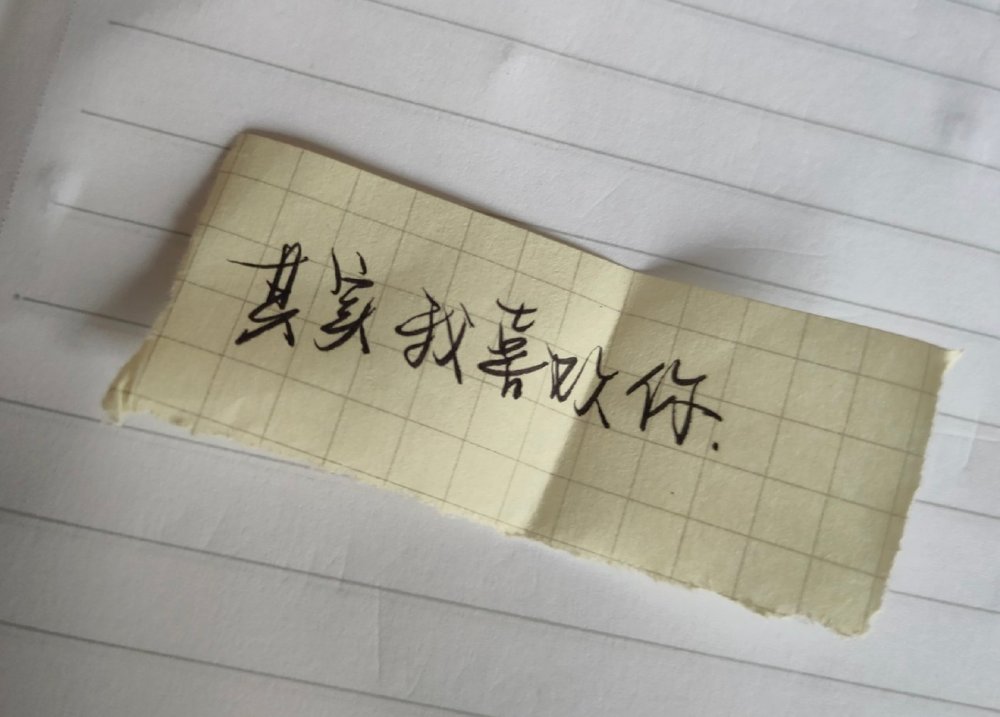 其实我喜欢你.